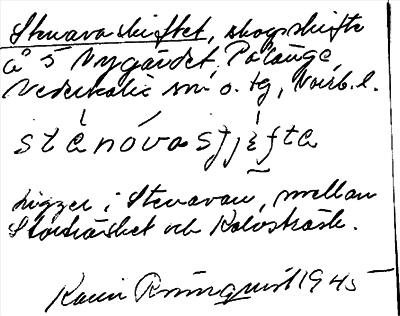 Stenavaskiftet, skogsskifte
å 5 Nygärdet, Pålänge,
Nederkalix sn o. tg, Norrb. l.
sténóvasjjèfta
ligger i Stenavan, mellan
och
Karin Rönnquist 1945